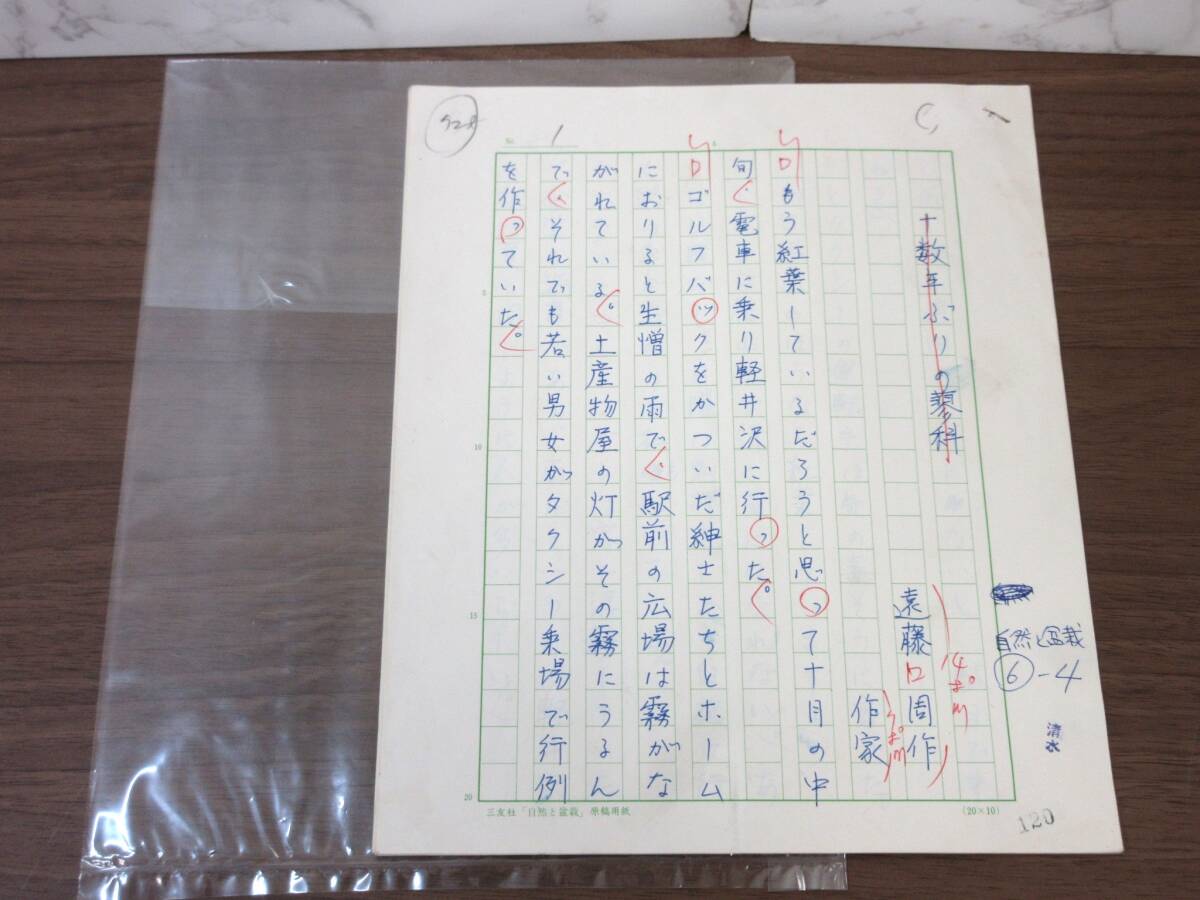 No. 1
十数年ぶりの蓼科
遠藤周作
作家
もう紅葉しているだろうと思って十月の中
旬、電車に乗り軽井沢に行った。
ゴルフバックをかついだ紳士たちとホーム
におりると生憎の雨で、駅前の広場は霧がな
がれている。土産物屋の灯がその霧にうるん
で、それでも若い男女がタクシー乗場で行例
を作っていた。
5
10
15
20
三友社「自然と盆栽」原稿用紙
(20×10)
自然と盆栽
⑥-4
清水
120